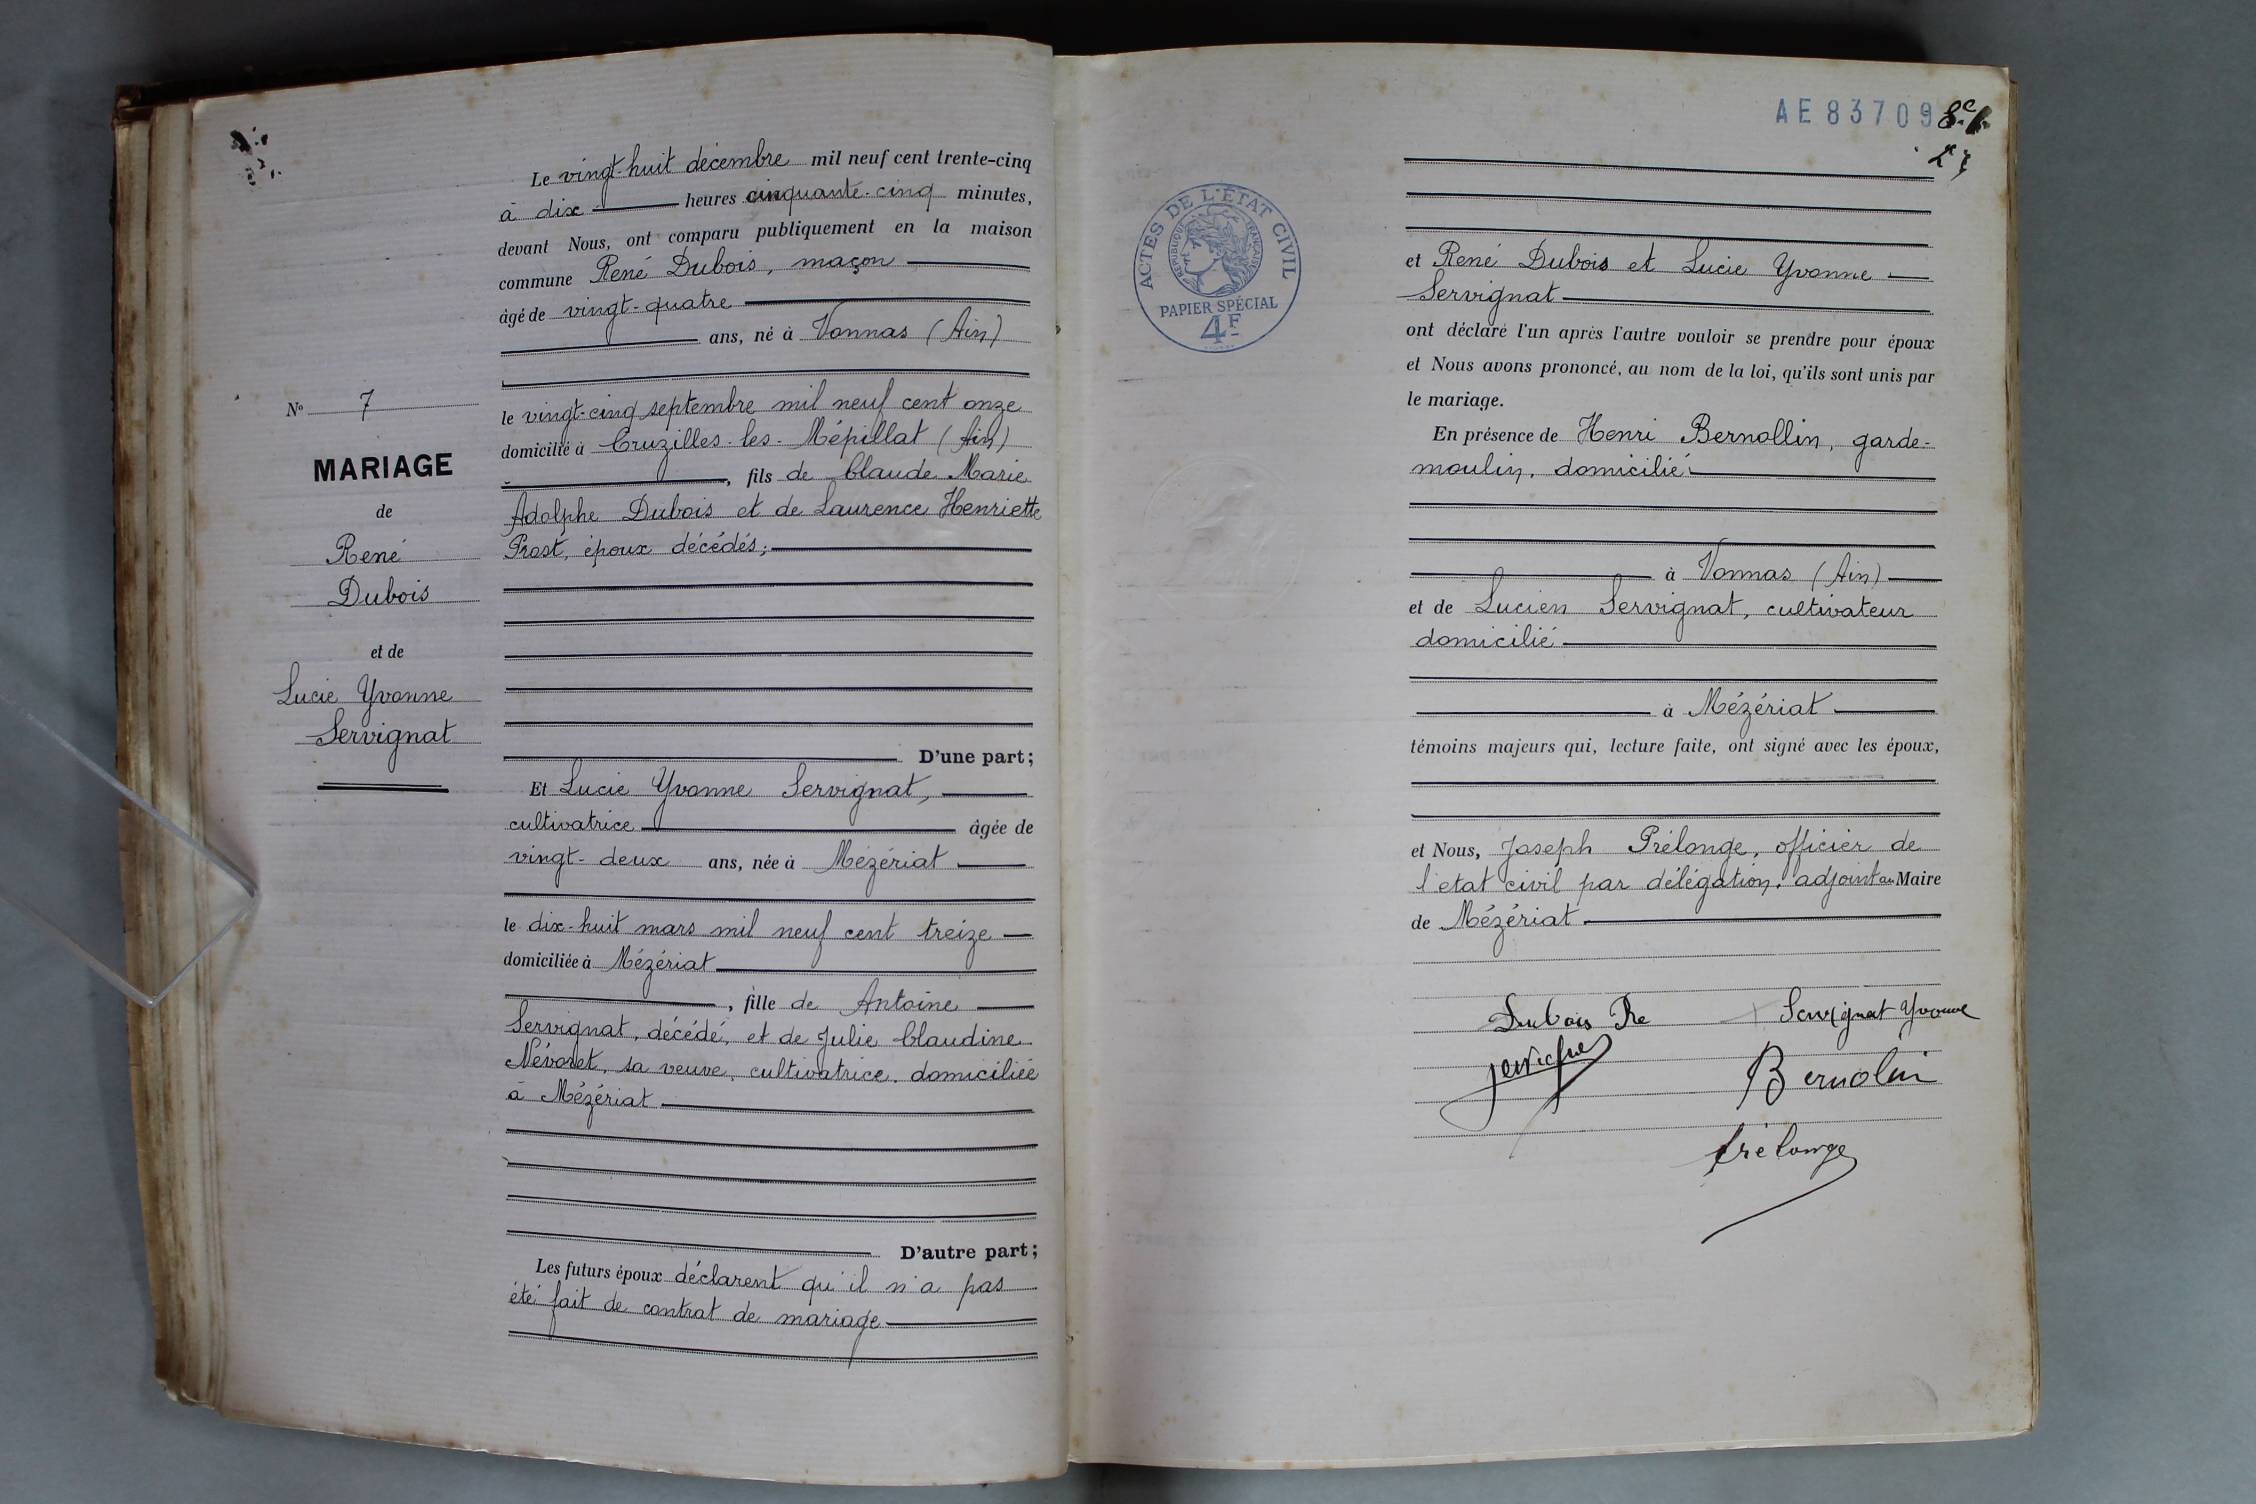 N° 7
MARIAGE
de
René
Dubois
et de
Lucie Yvonne
Servignat
Le vingt-huit décembre mil neuf cent trente-cinq
à dix heures cinquante-cinq minutes,
devant Nous, ont comparu publiquement en la maison
commune René Dubois, maçon
âgé de vingt-quatre
ans, né à Vonnas (Ain)
le vingt-cinq septembre mil neuf cent onze
domicilié à Cruzilles-les-Mépillat (Ain)
, fils de Claude Marie
Adolphe Dubois et de Laurence Henriette
Prost, époux décédés;
D'une part;
Et Lucie Yvonne Servignat,
cultivatrice âgée de
vingt-deux ans, née à Mézériat
le dix-huit mars mil neuf cent treize
domiciliée à Mézériat
, fille de Antoine
Servignat, décédé, et de Julie Claudine
Névoret, sa veuve, cultivatrice, domiciliée
à Mézériat
D'autre part;
Les futurs époux déclarent qu'il n'a pas
été fait de contrat de mariage
AE83709
ACTES DE L'ÉTAT CIVIL
RÉPUBLIQUE FRANÇAISE
PAPIER SPÉCIAL
4F
et René Dubois et Lucie Yvonne
Servignat
ont déclaré l'un après l'autre vouloir se prendre pour époux
et Nous avons prononcé, au nom de la loi, qu'ils sont unis par
le mariage.
En présence de Henri Bernollin, garde-
moulin, domicilié
à Vonnas (Ain)
et de Lucien Servignat, cultivateur
domicilié
à Mézériat
témoins majeurs qui, lecture faite, ont signé avec les époux,
et Nous, Joseph Prélonge, officier de
l'etat civil par délégation, adjoint au Maire
de Mézériat
Dubois Re Servignat Yvonne
Bernolin
Prélonge